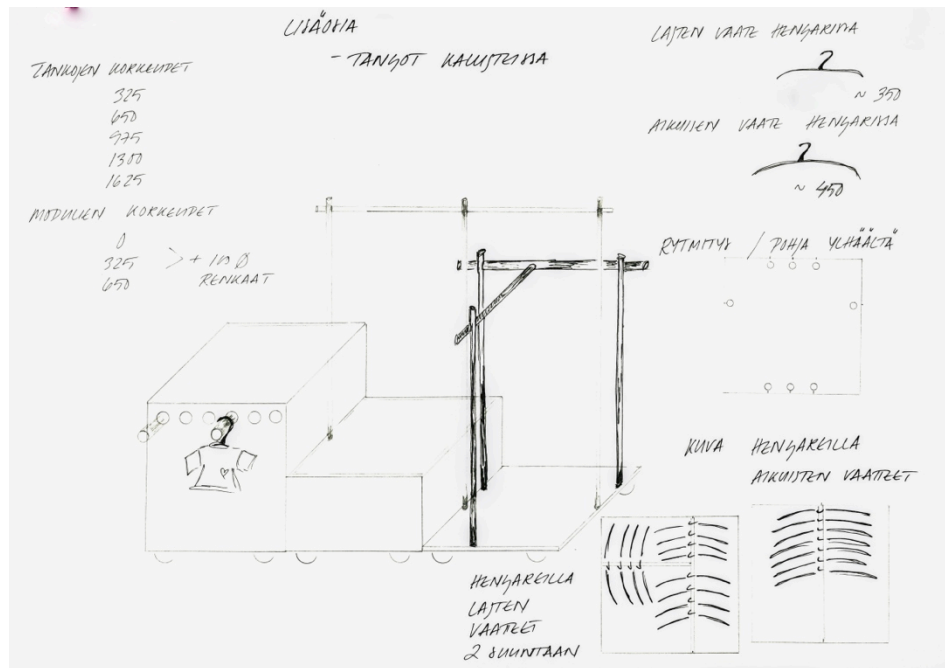 LISÄOSIA
- TANGOT KALUSTEISSA
TANKOJEN KORKEUDET
325
650
975
1300
1625
MODULIEN KORKEUDET
0
325
650
> + 100 Ø
RENKAAT
LASTEN VAATE HENGARISSA
~ 350
AIKUISEN VAATE HENGARISSA
~ 450
RYTMITYS / POHJA YLHÄÄLTÄ
KUVA HENGAREILLA
AIKUISTEN VAATTEET
HENGAREILLA
LASTEN
VAATEET
2 SUUNTAAN